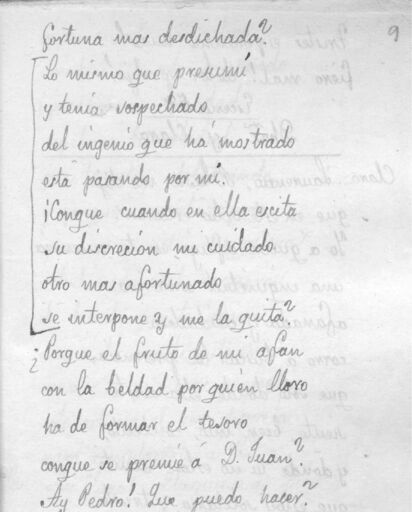 9
fortuna mas desdichada?
Lo mismo que presumí
y tenía sospechado
del ingenio que há mostrado
está pasando por mí.
¡Conque cuando en ella escita
su discreción mi cuidado
otro mas afortunado
se interpone y me la quita?
¿Porque el fruto de mi afan
con la beldad por quién lloro
ha de formar el tesoro
conque se premie á D. Juan?
Ay Pedro! Que puedo hacer?